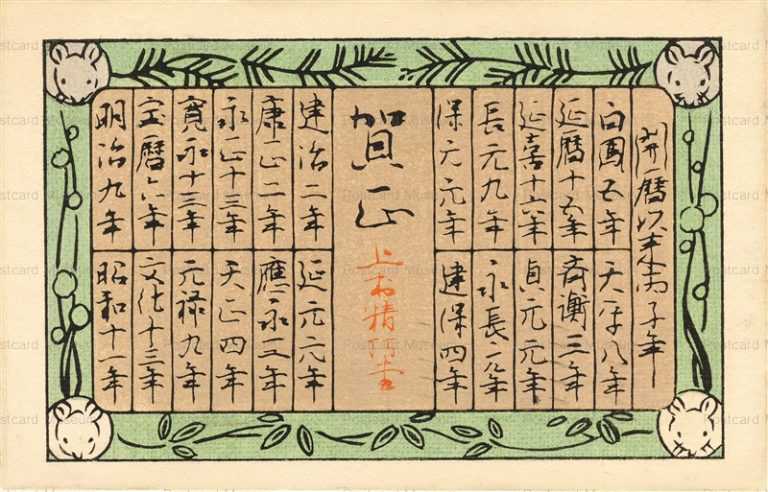 開暦以来丙子年
白鳳五年
天平八年
延暦十五年
斉衡三年
延喜十六年
貞元元年
長元九年
永長元年
保元元年
建保四年
賀正
上村精
建治二年
延元元年
康正二年
應永三年
永正十三年
天正四年
寛永十三年
元禄九年
宝暦六年
文化十三年
明治九年
昭和十一年
Postcard Museum